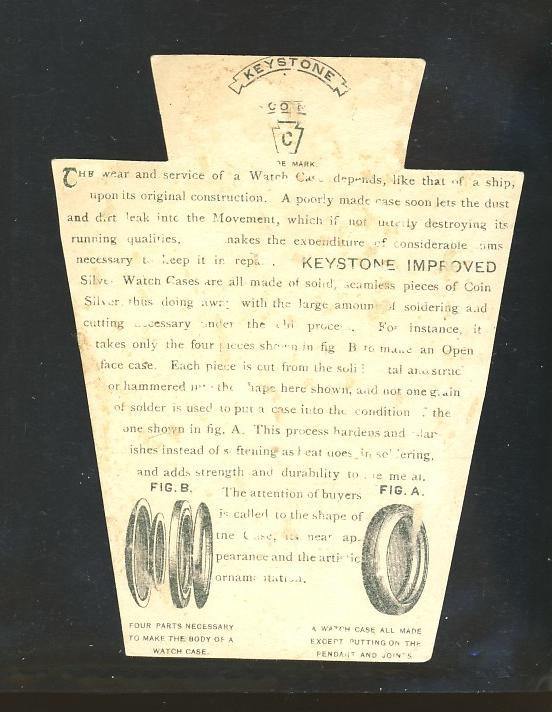 KEYSTONE
CO
C
MARK.
THE wear and service of a Watch Case depends, like that of a ship,
upon its original construction. A poorly made case soon lets the dust
and dirt leak into the Movement, which if not utterly destroying its
running qualities, makes the expenditure of considerable sums
necessary to keep it in KEYSTONE IMPROVED
Silver Watch Cases are all made of solid, seamless pieces of Coin
Silver, thus doing away with the large amount of soldering and
cutting necessary under the old process. For instance, it
takes only the four pieces shown in fig B to make an Open
face case. Each piece is cut from the and
or hammered the shape here shown, and not one grain
of solder is used to put a case into the condition of the
one shown in fig. A. This process hardens and
ishes instead of softening as heat does in soldering,
and adds strength and durability to the metal.
FIG. B.
The attention of buyers
is called to the shape of
the Case, its near ap-
pearance and the artistic
ornamentation.
FIG. A.
FOUR PARTS NECESSARY
TO MAKE THE BODY OF A
WATCH CASE.
A WATCH CASE ALL MADE
EXCEPT PUTTING ON THE
PENDANT AND JOINTS.